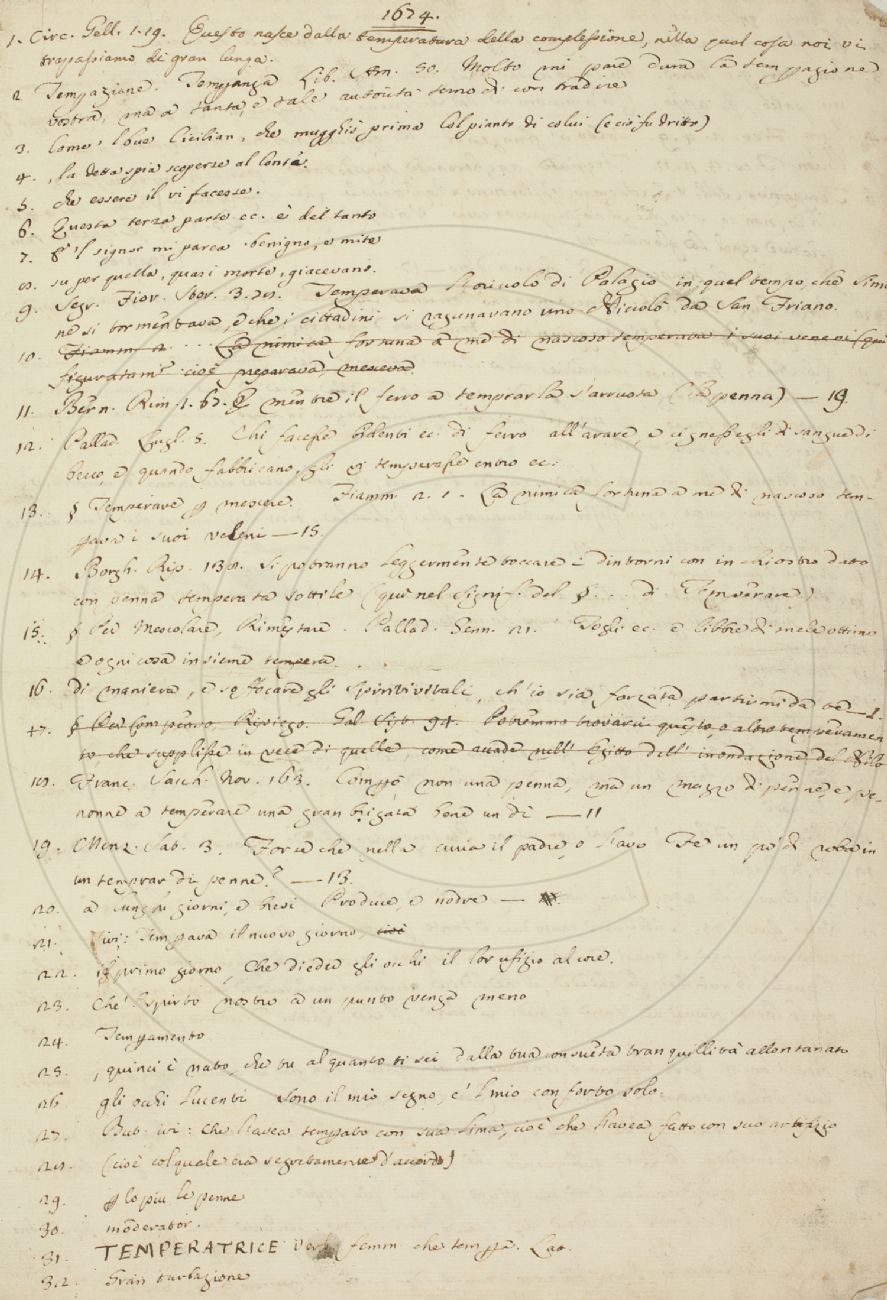 1674.
1. Circ. Gell. 1. 19. Questo nasce dalla temperatura della complessione, nella qual cosa noi vi
trapassiamo di gran lunga.
2 Tempazione. Tempanza Lib. Am. 50. Molto mi pare dura la tempazione
vostra, ma a tanta, e tale autorità temo di con tradire
3. Come 'l bue Cicilian, che mugghiò prima Col pianto di colui (e ciò fu dritto)
4. , la detta spia scoperse al Conte.
5. che essere il vi facesse.
6. Questa terza parte ec. è del tanto
7. E 'l signor mi parea benigno, e mite
8. su per quella, quasi morte, giacevano.
9. Segr. Fior. Stor. 3. Temperava l'orivolo di Palagio in quel tempo, che Simo
ne si tormentava, e che i cittadini si ragunavano uno Niccolò da San Friano.
10. Fiamm. 2. ... La nimica fortuna a me di nascoso temperava i suoi veneni (qui
figuratam. cioè preparava, mesceva
11. Bern. Rim. 1. mentre il ferro a temprarla s'arruota (la penna) — 19
12. Pallad. Lugl. 5. Chi facesse bidenti ec. di ferro all'arare, e cignessegli di sangue di
becco, e quando fabbricano, gli vi temperasse entro ec.
13. § Temperare p mescere. Fiamm. 2. 1. La nimica fortuna a me di nascoso tem-
pava i suoi veleni — 15.
14. Borgh. Rip. 138. Si potranno leggermente toccare i dintorni con inchiostro dato
con penna temperata sottile (qui nel signif. del §. ... di Temperare)
15. § Per Mescolare, Rimestare. Pallad. Genn. 21. Togli ec. e libbre di mele ottimo
e ogni cosa insieme tempera.
16. di maniera, e soffocare gli spiriti vitali, ch'io sia forzata partirmi da te — 1.
17. § Per Compenso, Ripiego. Gal. Sist. 94. Potremmo trovarci questo, o altro temperamen
to che supplisse in vece di quelle, come accade nell'Egitto dell'inondazione del Nilo
18. Franc. Sacch. Nov. 163. Comprò non una penna, ma un mazzo di penne, e pe-
nonne a temperare una gran brigata bene un dì — 11
19. Menz. Sat. 3. Forse che nella curia il padre, o l'avo Fe un po' di roba in
un temprar di penne? — 13.
20. a lunghi giorni, e brevi Produce, e nodre —
21. Ivi: Tempava il nuovo giorno, cioè
22. il primo giorno, Che diede gli occhi il lor ufizio al core.
23. Che 'l spirto nostro a un punto venga meno
24. Tempamento
25. , quinci è nato, che tu alquanto ti sei dalla tua consueta tranquillità allontanato
26 gli occhi lucenti Sono il mio segno, e 'l mio conforto solo.
27. But. ivi: Che l'avea tempato con sua lima, cioè che l'avea fatto con suo artifizio
28. (cioè col quale era segretamente d'accordo)
29. p lo più le penne
30. moderator.
31. TEMPERATRICE Verb. femm. che tempa. Lat.
32. Gran turbazione